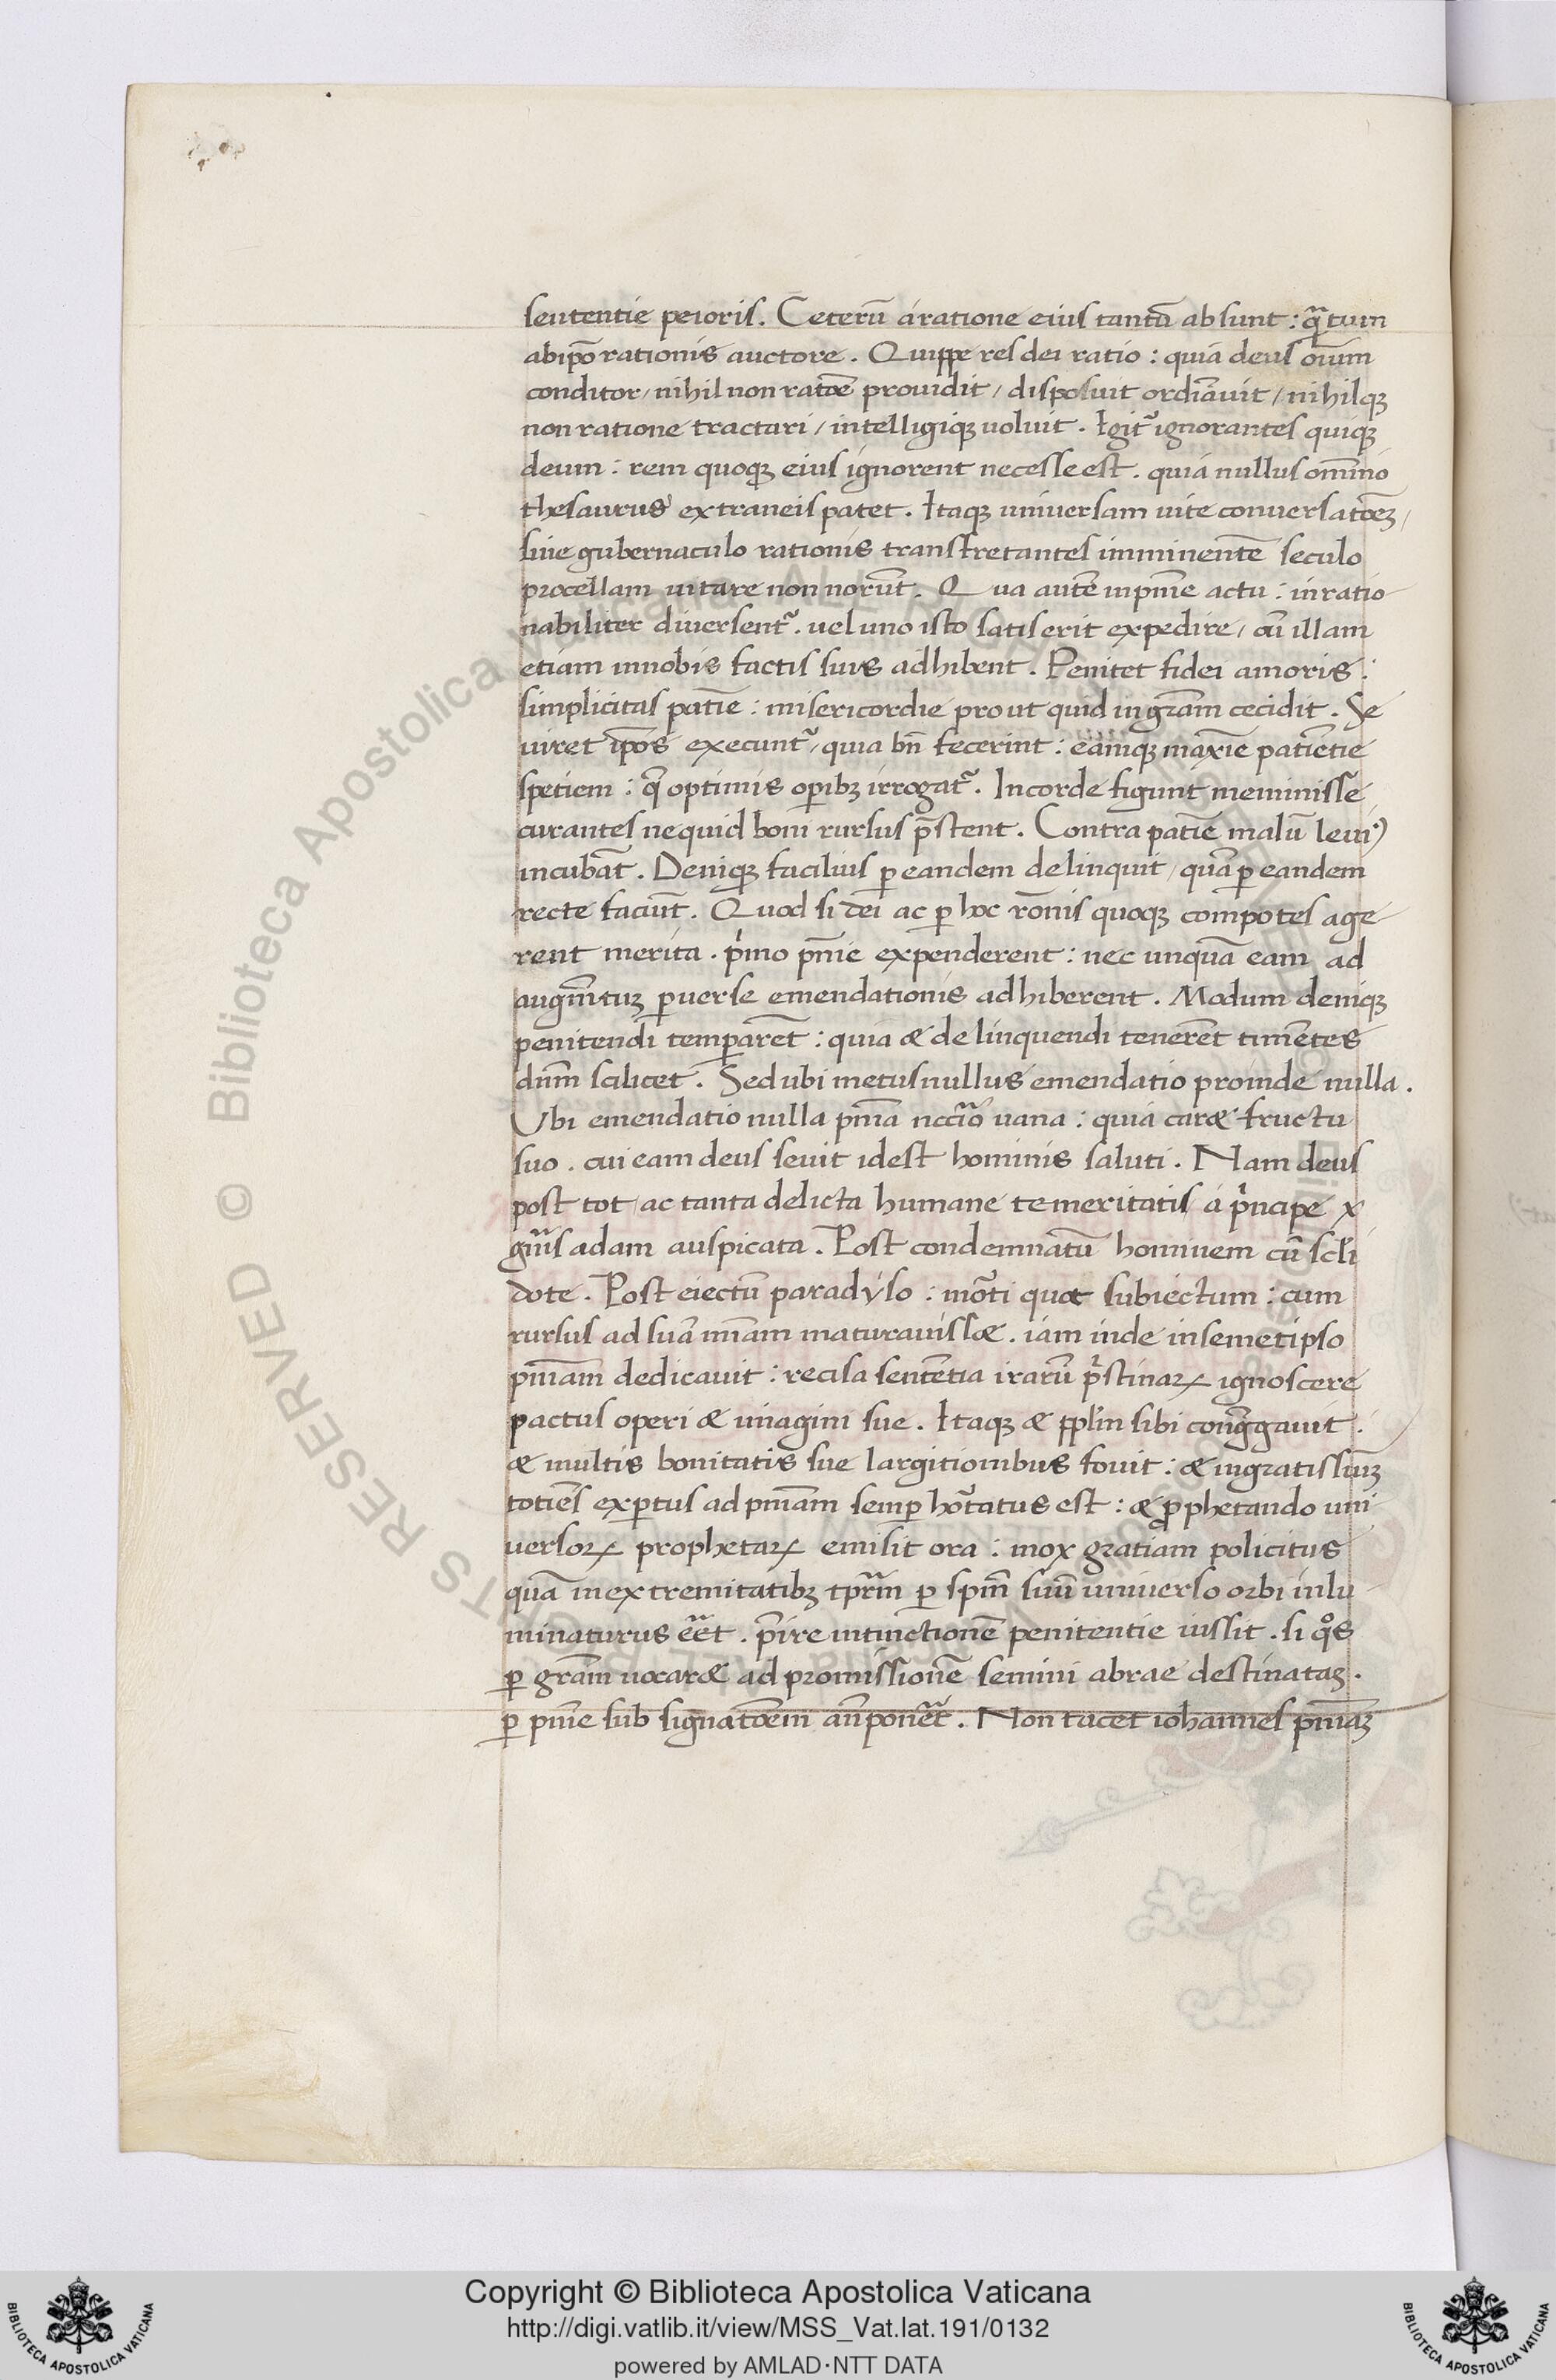 sententie peioris. Ceterũ a ratione eius tantũ absunt: qᷓtum
ab ip̃o rationis auctore. Quippe res dei ratio: quia deus oĩum
conditor / nihil non ratõe prouidit / disposuit ordĩauit / nihilqꝫ
non ratione tractari / intelligiqꝫ uoluit. Igit᷑ ignorantes quiqꝫ
deum: rem quoqꝫ eius ignorent necesse est. quia nullus omnĩo
thesaurus extraneis patet. Itaqꝫ uniuersam uite conuersatõeꝫ /
sine gubernaculo rationis transfretantes imminentẽ seculo
procellam uitare non norũt. Qua autẽ in pñie actu: inratio-
nabiliter diuersent᷑. uel uno isto satis erit expedire / cũ illam
etiam in nobis factis suis adhibent. Penitet fidei amoris:
simplicitas patiẽ: misericordie prout quid in grãm cecidit. Se
uiret ip̃os execunt᷑ / quia bñ fecerint: eamqꝫ maxĩe patiẽtie
spetiem: q̃ optimis oꝑibꝫ irrogat᷑. In corde figunt meminisse
curantes ne quid boni rursus p̃stent. Contra patiẽ malũ leui᷒
incubãt. Deniqꝫ facilius ꝑ eandem delinquit / quã ꝑ eandem
recte faciũt. Quod si dei ac ꝑ hoc rõnis quoqꝫ compotes age-
rent merita. pͥmo pñie expenderent: nec unquã eam ad
augm̃tuꝫ ꝑuerse emendationis adhiberent. Modum deniqꝫ
penitendi temꝑarẽt: quia & delinquendi tenerẽt timẽtes
dñm scilicet. Sed ubi metus nullus emendatio proinde nulla.
Vbi emendatio nulla pñia ncc̃rio uana: quia car& fructu
suo. cui eam deus seuit idest hominis saluti. Nam deus
post tot / ac tanta delicta humane temeritatis a pͥncipe x
gñis adam auspicata. Post condemnatũ hominem cũ scl̃i
dote. Post eiectũ paradyso: mõti quoꝫ subiectum: cum
rursus ad suã mĩam maturauiss&. iam inde in semetipso
pñiam dedicauit: recisa sentẽtia irarũ pͥstinaꝝ ignoscere
pactus operi & imagini sue. Itaqꝫ & ppl̃m sibi cong̃gauit:
& multis bonitatis sue largitionibus fouit: & ingratissimꝫ
totiẽs exꝑtus ad pñiam semꝑ hõtatus est: & ꝓphetando uni
uersoꝝ prophetaꝝ emisit ora: mox gratiam policitus
quã in extremitatibꝫ tꝑrm̃ ꝑ spm̃ suũ uniuerso orbi inlu
minaturus eẽt. p̃ire intinctionẽ penitentie iussit. si qͦs
ꝑ grãm uocar& ad promissionẽ semini abrae destinataꝫ.
ꝑ pñie sub signatõem añponẽt. Non tacet iohannes pñiaꝫ
© Biblioteca Apostolica Vaticana ALL RIGHTS RESERVED
Copyright © Biblioteca Apostolica Vaticana
http://digi.vatlib.it/view/MSS_Vat.lat.191/0132
powered by AMLAD·NTT DATA
BIBLIOTECA APOSTOLICA VATICANA
BIBLIOTECA APOSTOLICA VATICANA